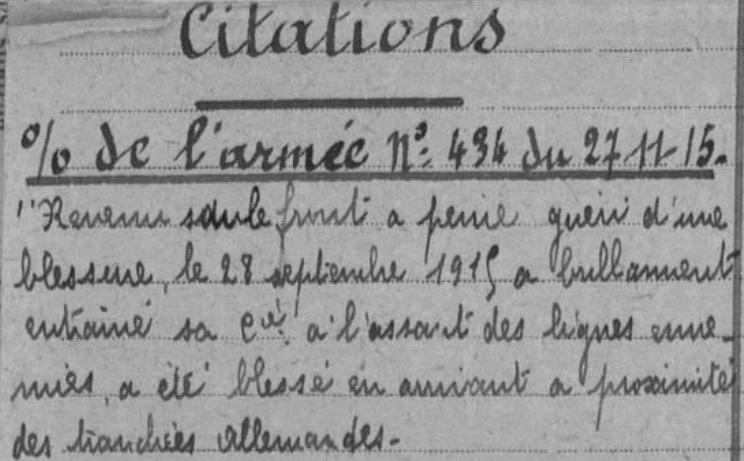 Citations
% de l'armée N°: 434 du 27-11-15.
"Revenu sur le front a peine guéri d'une
blessure, le 28 septembre 1915 a brillamment
entraîné sa Cie à l'assaut des lignes enne-
mies, a été blessé en arrivant a proximité
des tranchées allemandes-